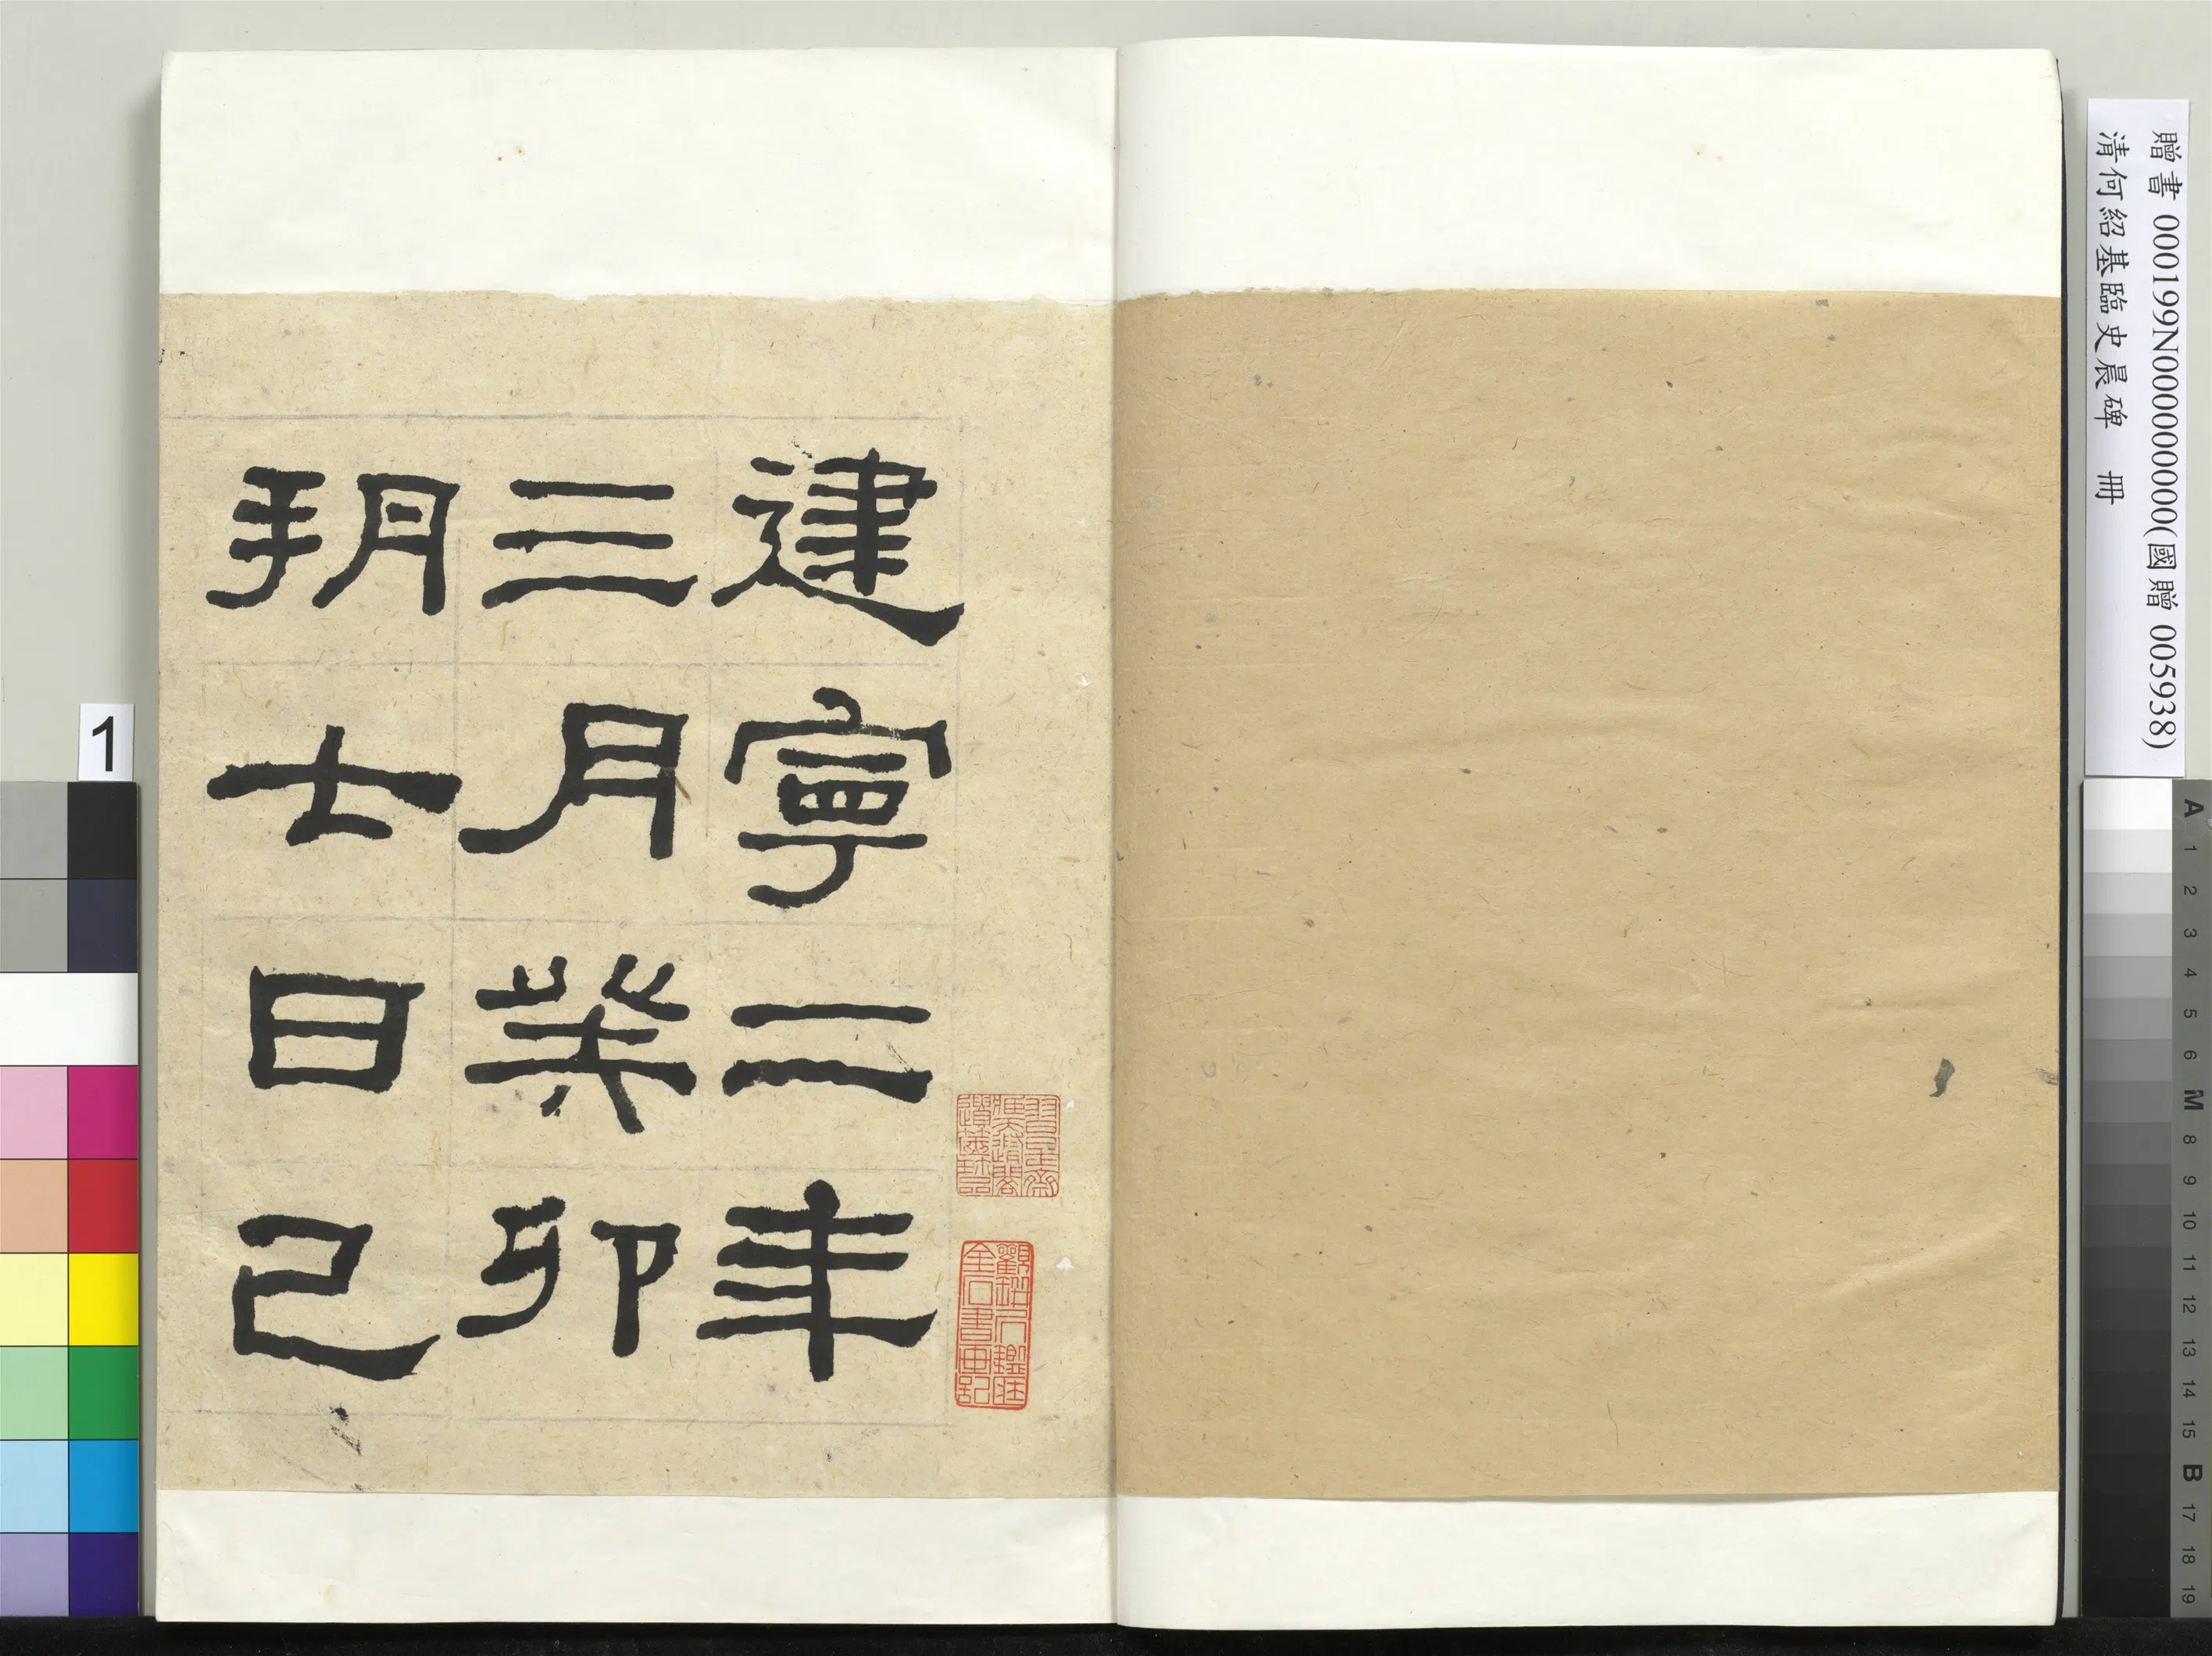 建寧二年
三月癸卯
朔七日己
贈書 000199N000000000(國贈 005938)
清何紹基臨史晨碑 冊
1
A
1
2
3
4
5
6
M
8
9
10
11
12
13
14
15
B
17
18
19